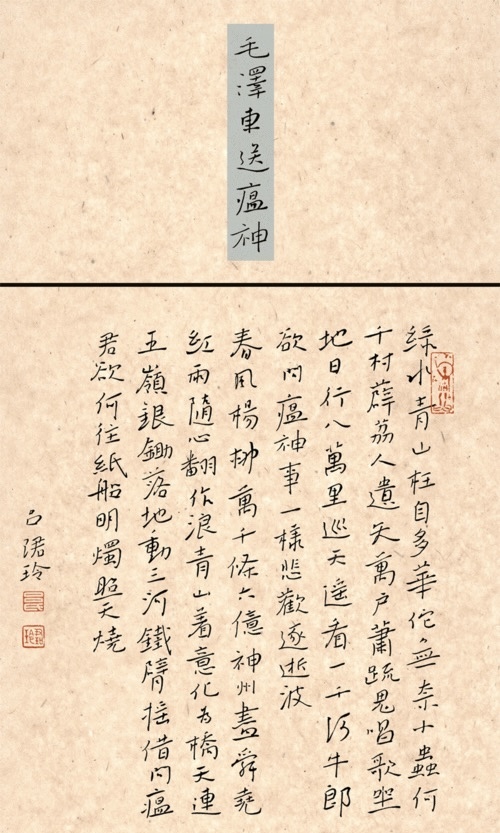 毛澤東送瘟神
綠水青山枉自多華佗無奈小蟲何
千村薜荔人遺矢萬戶蕭疏鬼唱歌坐
地日行八萬里巡天遙看一千河牛郎
欲問瘟神事一樣悲歡逐逝波
春風楊柳萬千條六億神州盡舜堯
紅雨隨心翻作浪青山着意化為橋天連
五嶺銀鋤落地動三河鐵臂搖借問瘟
君欲何往紙船明燭照天燒
吕珺玲